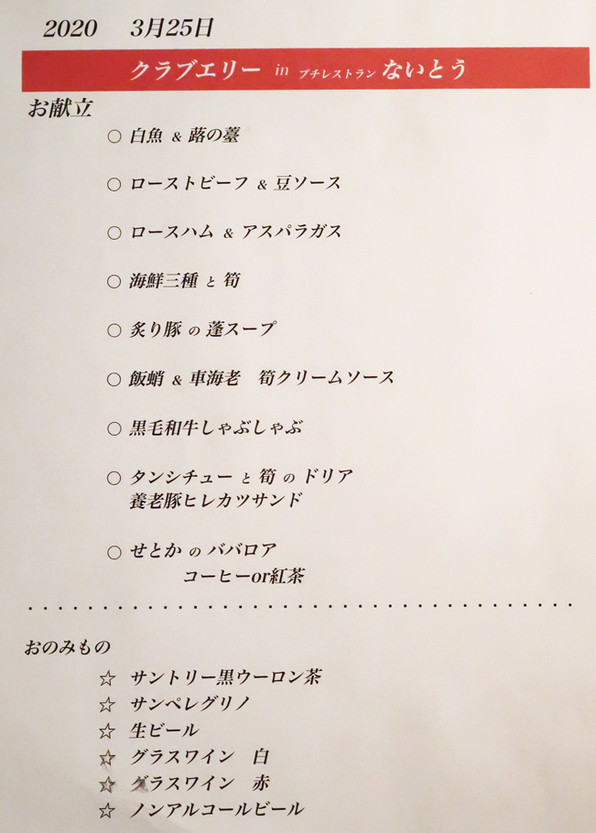 2020 3月25日
クラブエリー in プチレストラン ないとう
お献立
○ 白魚 & 蕗の薹
○ ローストビーフ & 豆ソース
○ ロースハム & アスパラガス
○ 海鮮三種 と 筍
○ 炙り豚 の 蓬スープ
○ 飯蛸 & 車海老 筍クリームソース
○ 黒毛和牛しゃぶしゃぶ
○ タンシチュー と 筍 の ドリア
養老豚ヒレカツサンド
○ せとか の ババロア
コーヒーor紅茶
おのみもの
☆ サントリー黒ウーロン茶
☆ サンペレグリノ
☆ 生ビール
☆ グラスワイン 白
☆ グラスワイン 赤
☆ ノンアルコールビール